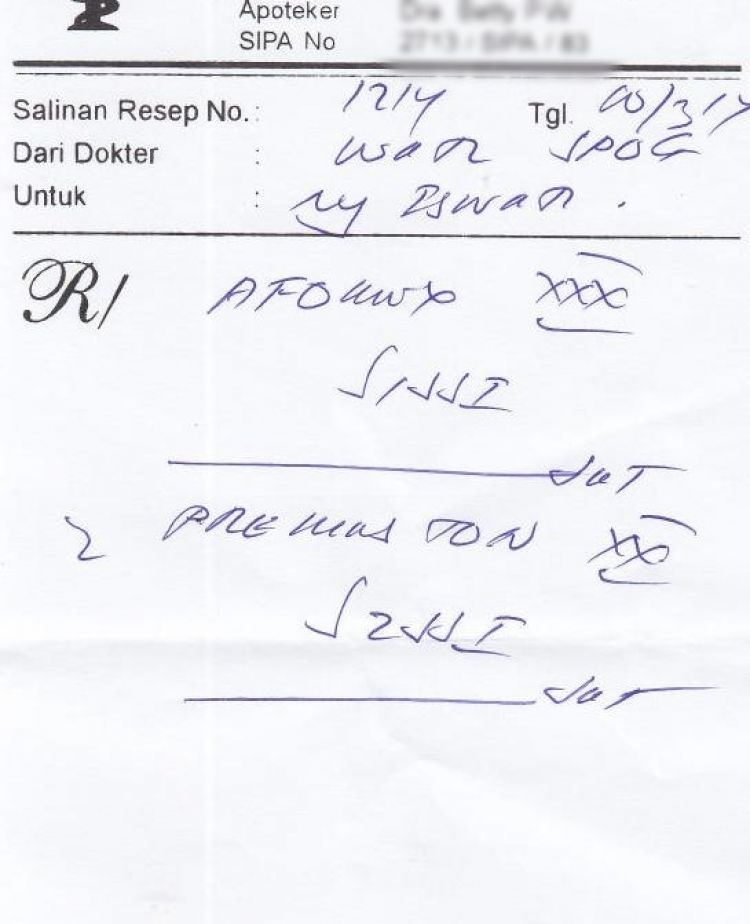 Apoteker
SIPA No
Salinan Resep No. : 1214 Tgl.
Dari Dokter : SPOG
Untuk : Ny Iswati .
R/ XXX
S1ddI
det
2 PREMASTON XX
S2ddI
det